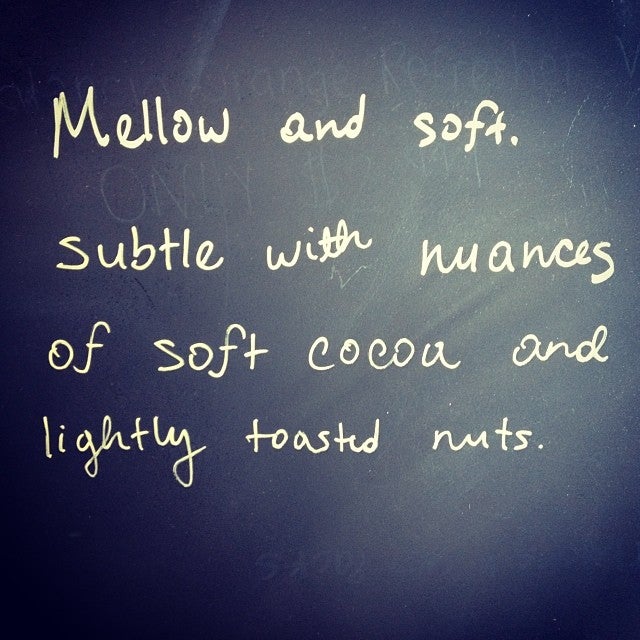 Mellow and soft.
subtle with nuances
of soft cocoa and
lightly toasted nuts.